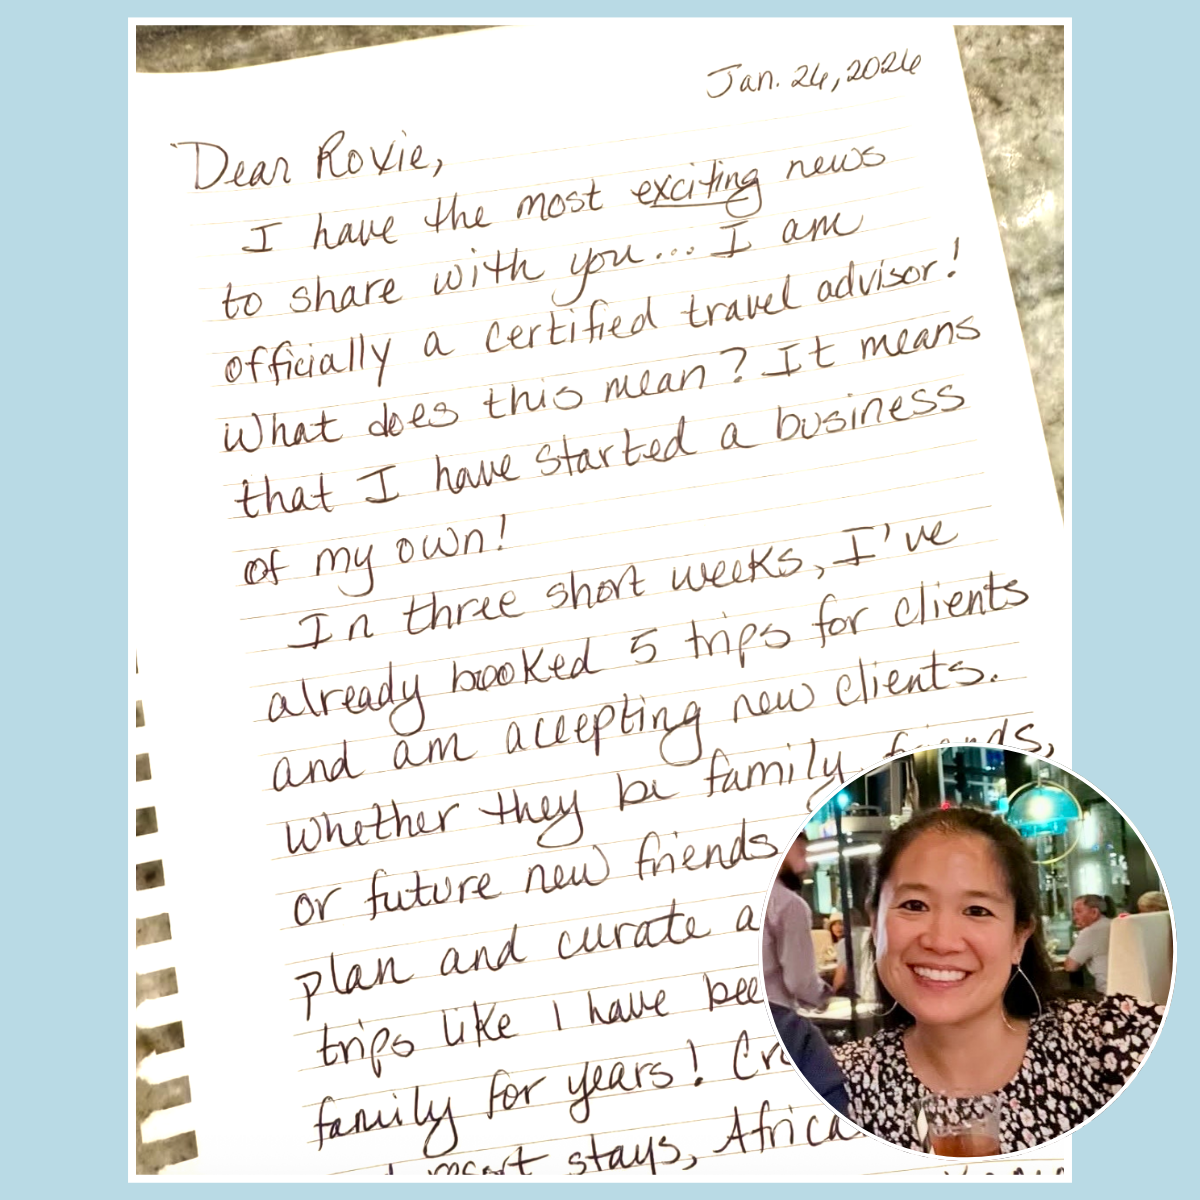 Jan. 26, 2026
Dear Roxie,
I have the most exciting news
to share with you... I am
officially a certified travel advisor!
What does this mean? It means
that I have started a business
of my own!
In three short weeks, I've
already booked 5 trips for clients
and am accepting new clients.
Whether they be family, friends,
or future new friends
plan and curate a
trips like I have bee
family for years! Cr
stays, Africa